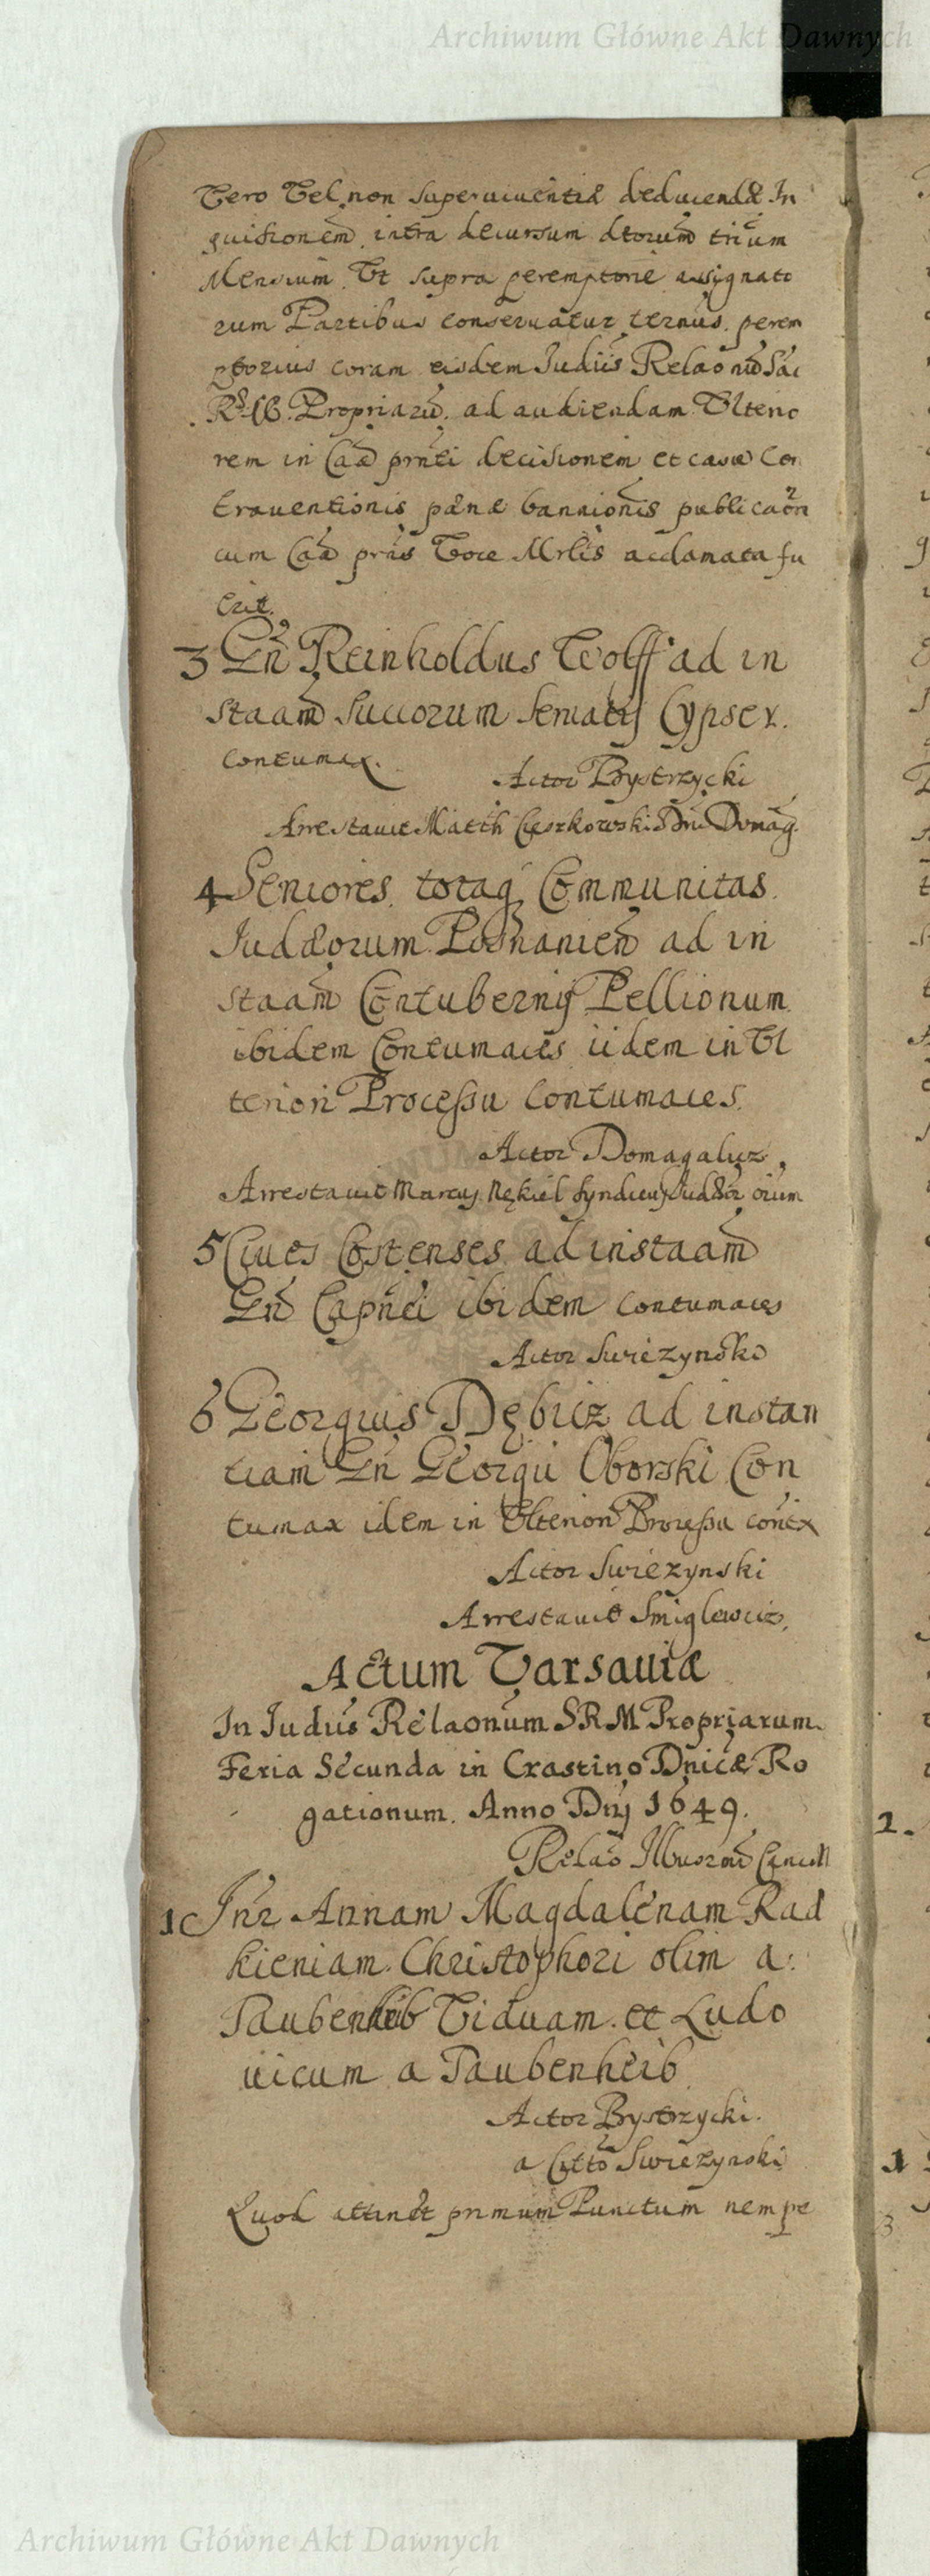 Archiwum Główne Akt Dawnych
Vero Vel non superviventiæ deducendæ In
quisitionem intra decursum dtorum trium
Mensium Vt supra peremptorie assignato
rum Partibus conservatur ternus perem
ptorius coram eisdem Iudiis Relaonu Sac
Rs M Propriaru ad audiendam Vlterio
rem in Caa prnti decisionem et casu Con
traventionis pænæ bannionis publicaon
cum Caa prns Voce Mrlis acclamata fu
erit.
3 Gn Reinholdus Wolff ad in
staam Succorum Seniatus Gypser.
contumax.
Actor Bystrzycki
Arrestavit Matth Cieszkowski Dni Domag.
4 Seniores totaq Communitas
Iudæorum Posnanien ad in
staam Contubernij Pellionum
ibidem Contumaces iidem in Vl
teriori Processu Contumaces.
Actor Domagalicz
Arrestavit Marcus Nękiel Syndicus Iudæorum
5 Cives Costenses ad instaam
Gn Capnei ibidem contumaces
Actor Swiezynski
6 Georgius Dębicz ad instan
tiam Gn Georgii Oborski Con
tumax idem in Vlteriori Processu contx
Actor Swiezynski
Arrestavit Smiglewicz.
Actum Varsaviæ
In Iudiis Relaonum SRM Propriarum.
Feria Secunda in Crastino Dnicæ Ro
gationum. Anno Dnj 1649.
Relao Illvormo Cancell
1 Intr Annam Magdalenam Rad
kieniam Christophori olim a:
Taubenheib Viduam et Ludo
vicum a Taubenheib
Actor Bystrzycki.
a Citto Swiezynski
Quod attinet primum Punctum nempe
Archiwum Główne Akt Dawnych